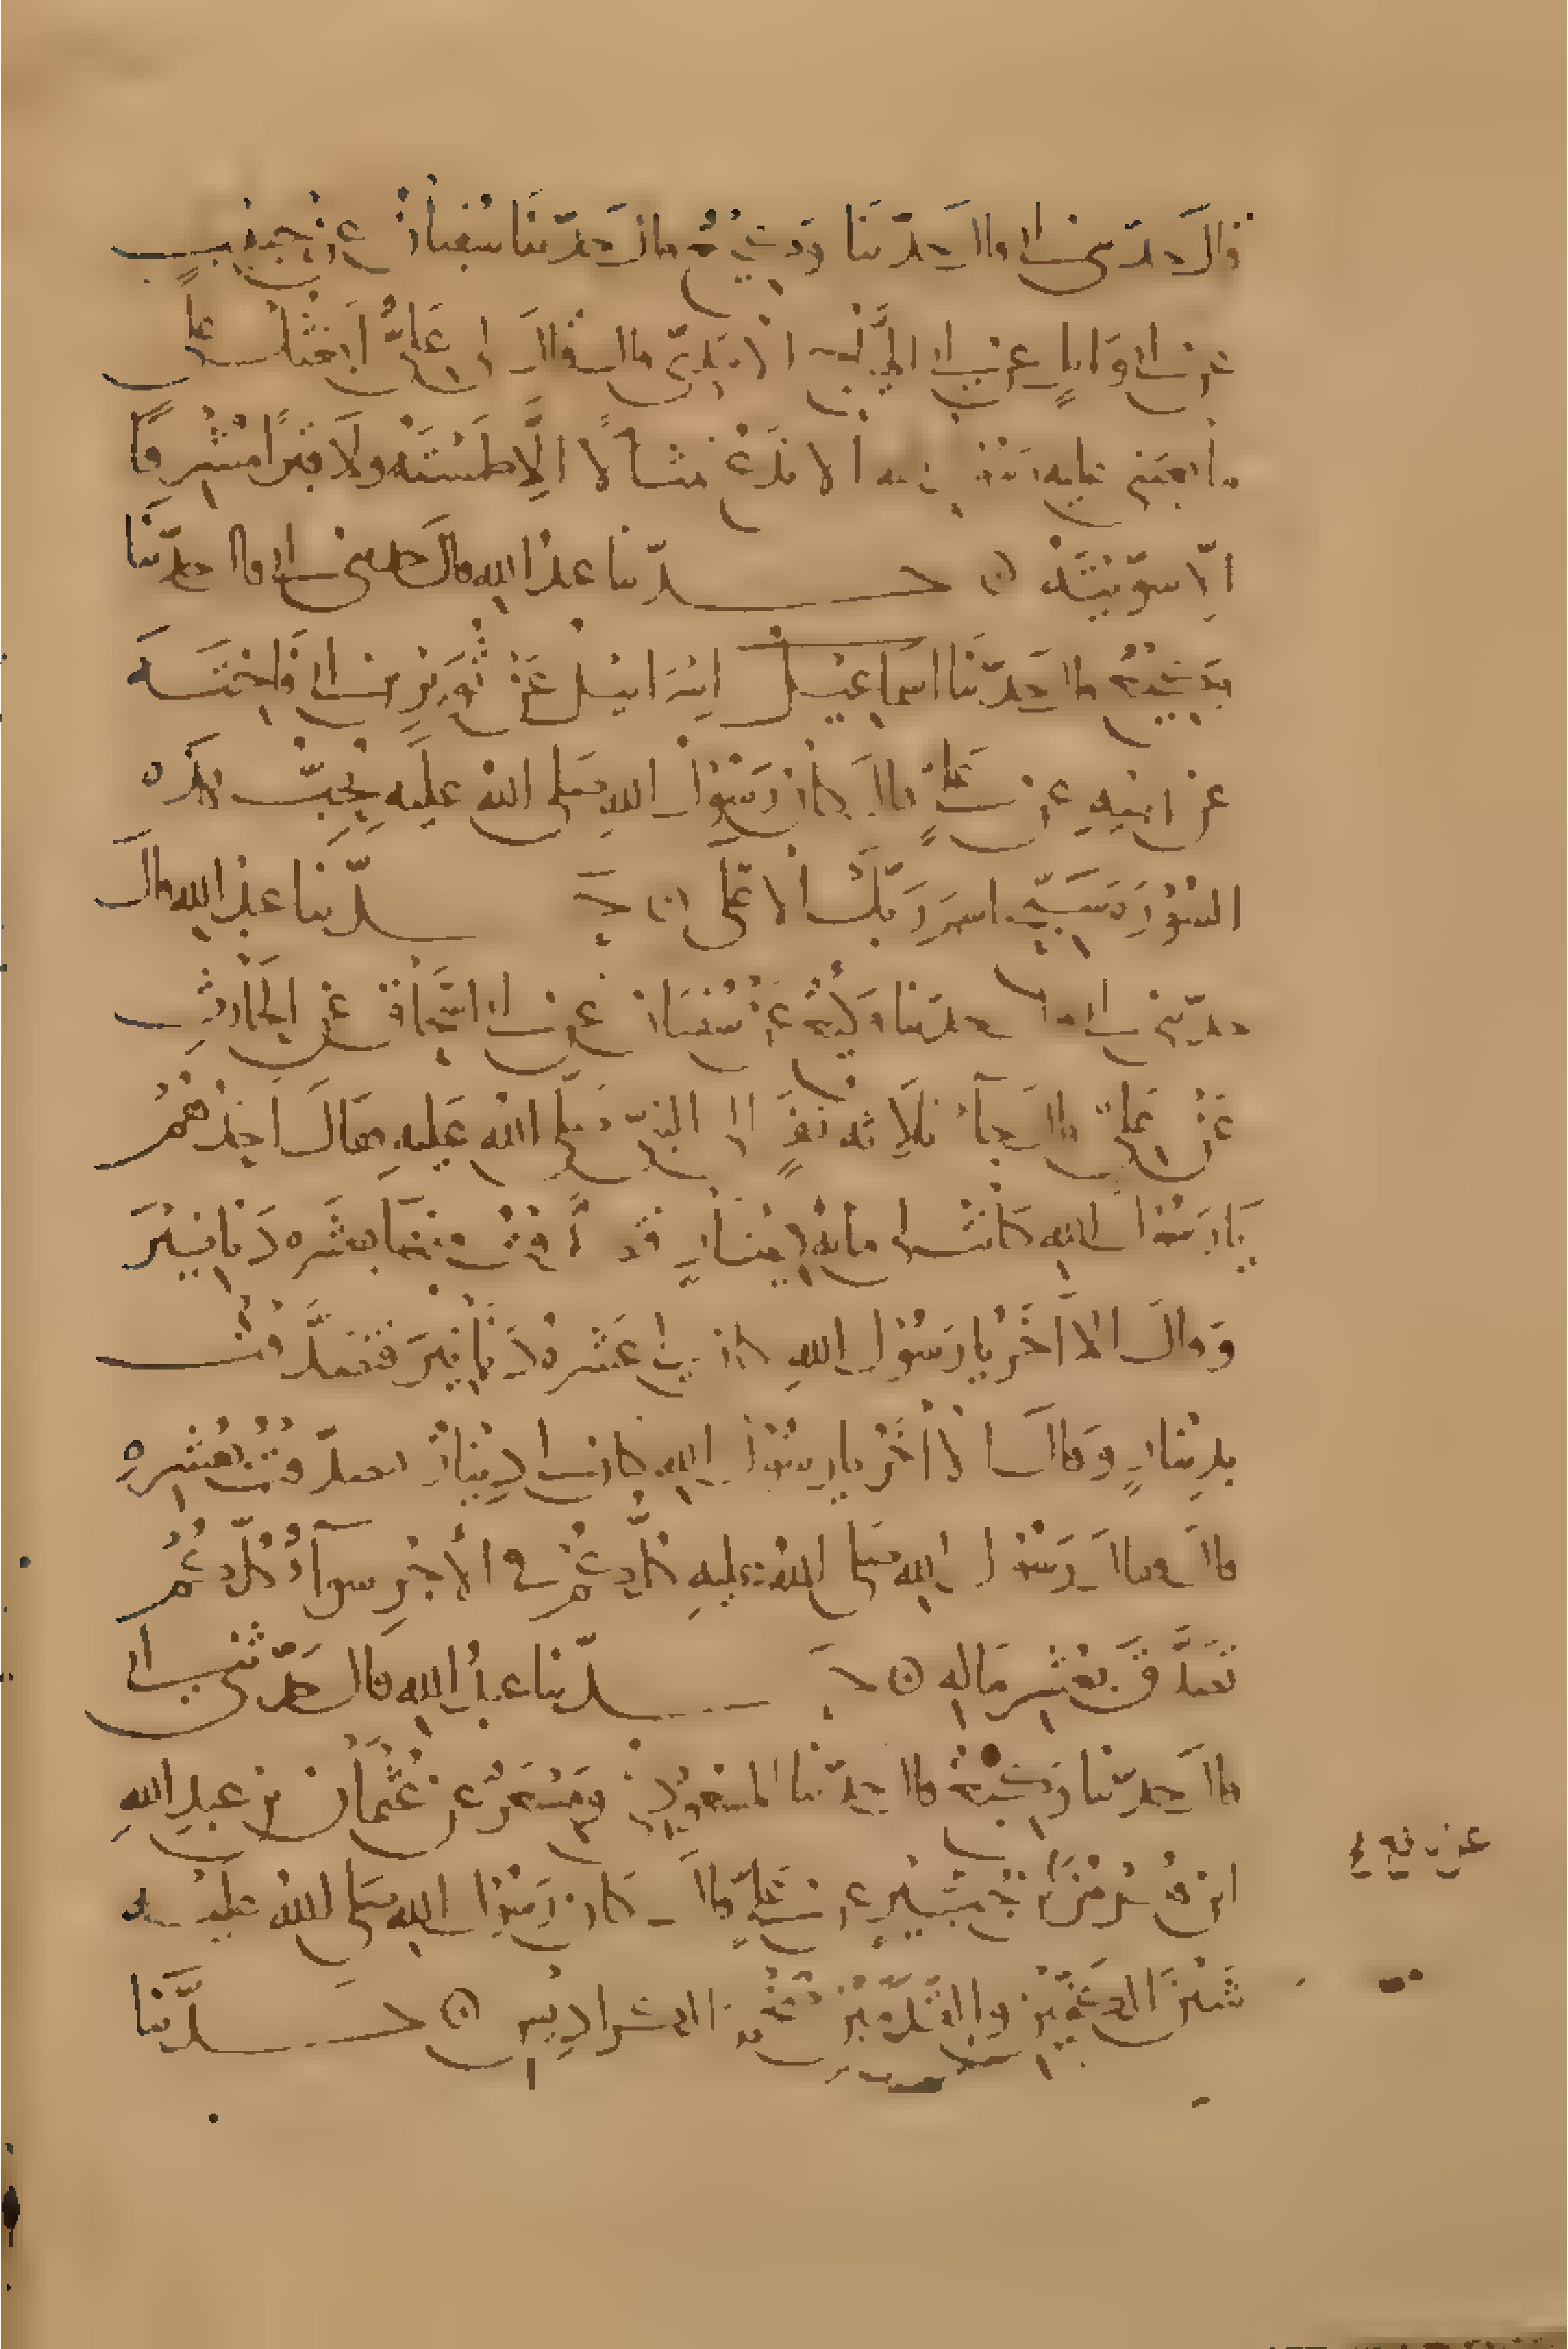 قال حدثني ابي قال حدثنا وكيع قال حدثنا سفيان عن حبيب
عن ابي وايل عن ابي الهياج الاسدي قال قال لي علي ابعثك على
ما بعثني عليه رسول الله ان لا تدع تمثالا الا طمسته ولا قبرا مشرفا
الا سويته ه حدثنا عبد الله قال حدثني ابي قال حدثنا
وكيع قال حدثنا اسماعيل اسرائيل عن ثوير بن ابي فاختة
عن ابيه عن علي قال كان رسول الله صلى الله عليه يحب هذه
السورة سبح اسم ربك الاعلى ه حدثنا عبد الله قال
حدثني ابي قال حدثنا وكيع عن سفيان عن ابي اسحاق عن الحارث
عن علي قال جاء ثلاثة نفر الى النبي صلى الله عليه فقال احدهم
يا رسول الله كانت لي مائة دينار فتصدقت منها بعشرة دنانير
وقال الاخر يا رسول الله كان لي عشرة دنانير فتصدقت
بدينار وقال الاخر يا رسول الله كان لي دينار فتصدقت بعشره
قال فقال رسول الله صلى الله عليه كلكم في الاجر سواء كلكم
تصدق بعشر ماله ه حدثنا عبد الله قال حدثني ابي
قال حدثنا وكيع قال حدثنا المسعودي ومسعر عن عثمان بن عبد الله
ابن هرمز عن نافع بن جبير عن علي قال كان رسول الله صلى الله عليه
شثن الكفين والقدمين ضخم الكراديس ه حدثنا
عن نافع